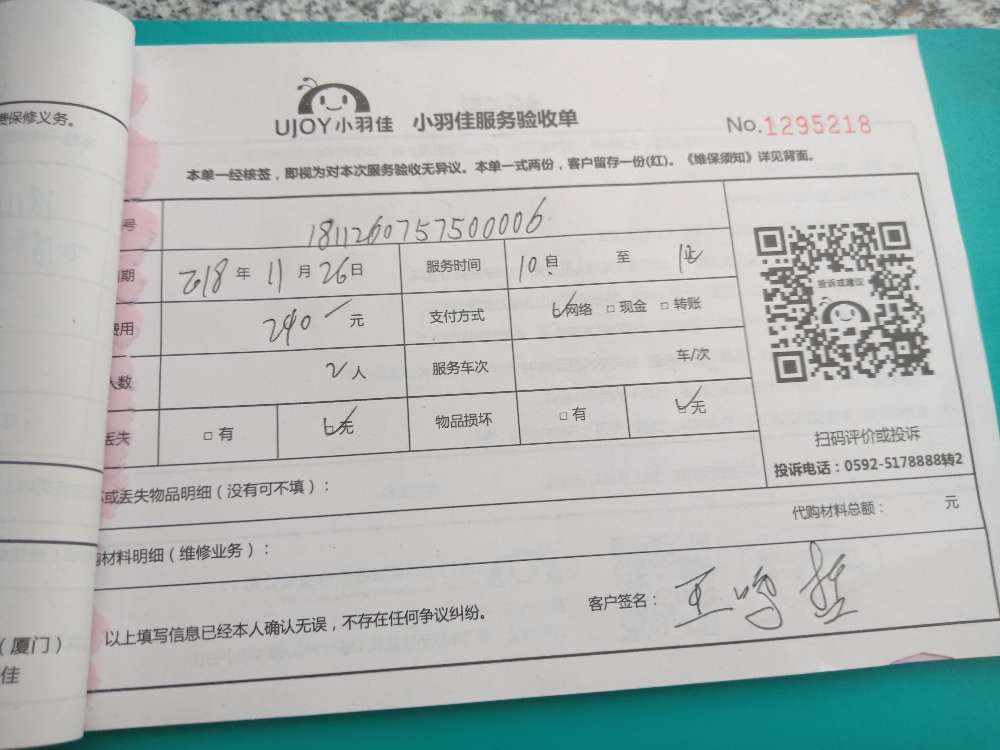 费保修义务。
UJOY小羽佳 小羽佳服务验收单
No.1295218
本单一经核签，即视为对本次服务验收无异议。本单一式两份，客户留存一份(红)。《维保须知》详见背面。
号 1811260757500006
期 2018年11月26日 服务时间 10自 至 12
费用 240元 支付方式 网络 □现金 □转账
人数 2人 服务车次 车/次
丢失 □有 无 物品损坏 □有 无
投诉或建议
扫码评价或投诉
投诉电话：0592-5178888转2
坏或丢失物品明细（没有可不填）：
代购材料总额： 元
购材料明细（维修业务）：
以上填写信息已经本人确认无误，不存在任何争议纠纷。
客户签名：王
（厦门）
佳